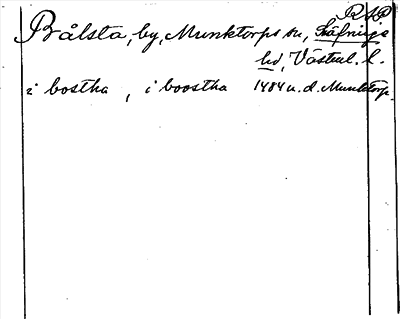 RAP
Bålsta, by, Munktorps sn, Snäfringe
hd, Västml. l.
i bostha, i boostha 1484 u. d. Munktorp.